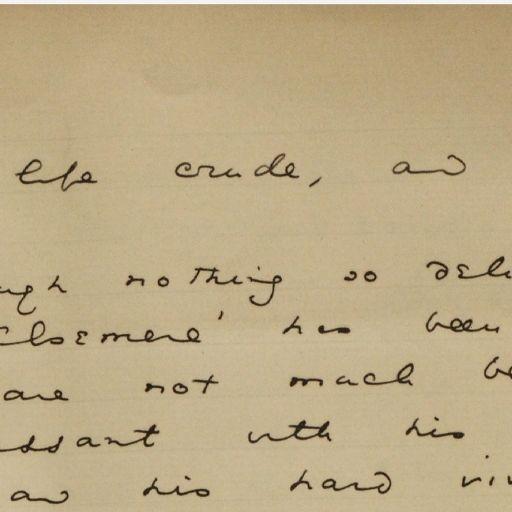 life crude, and
ugh nothing so deli
Elsemere' has been
are not much be
ssant with his
and his hard viv